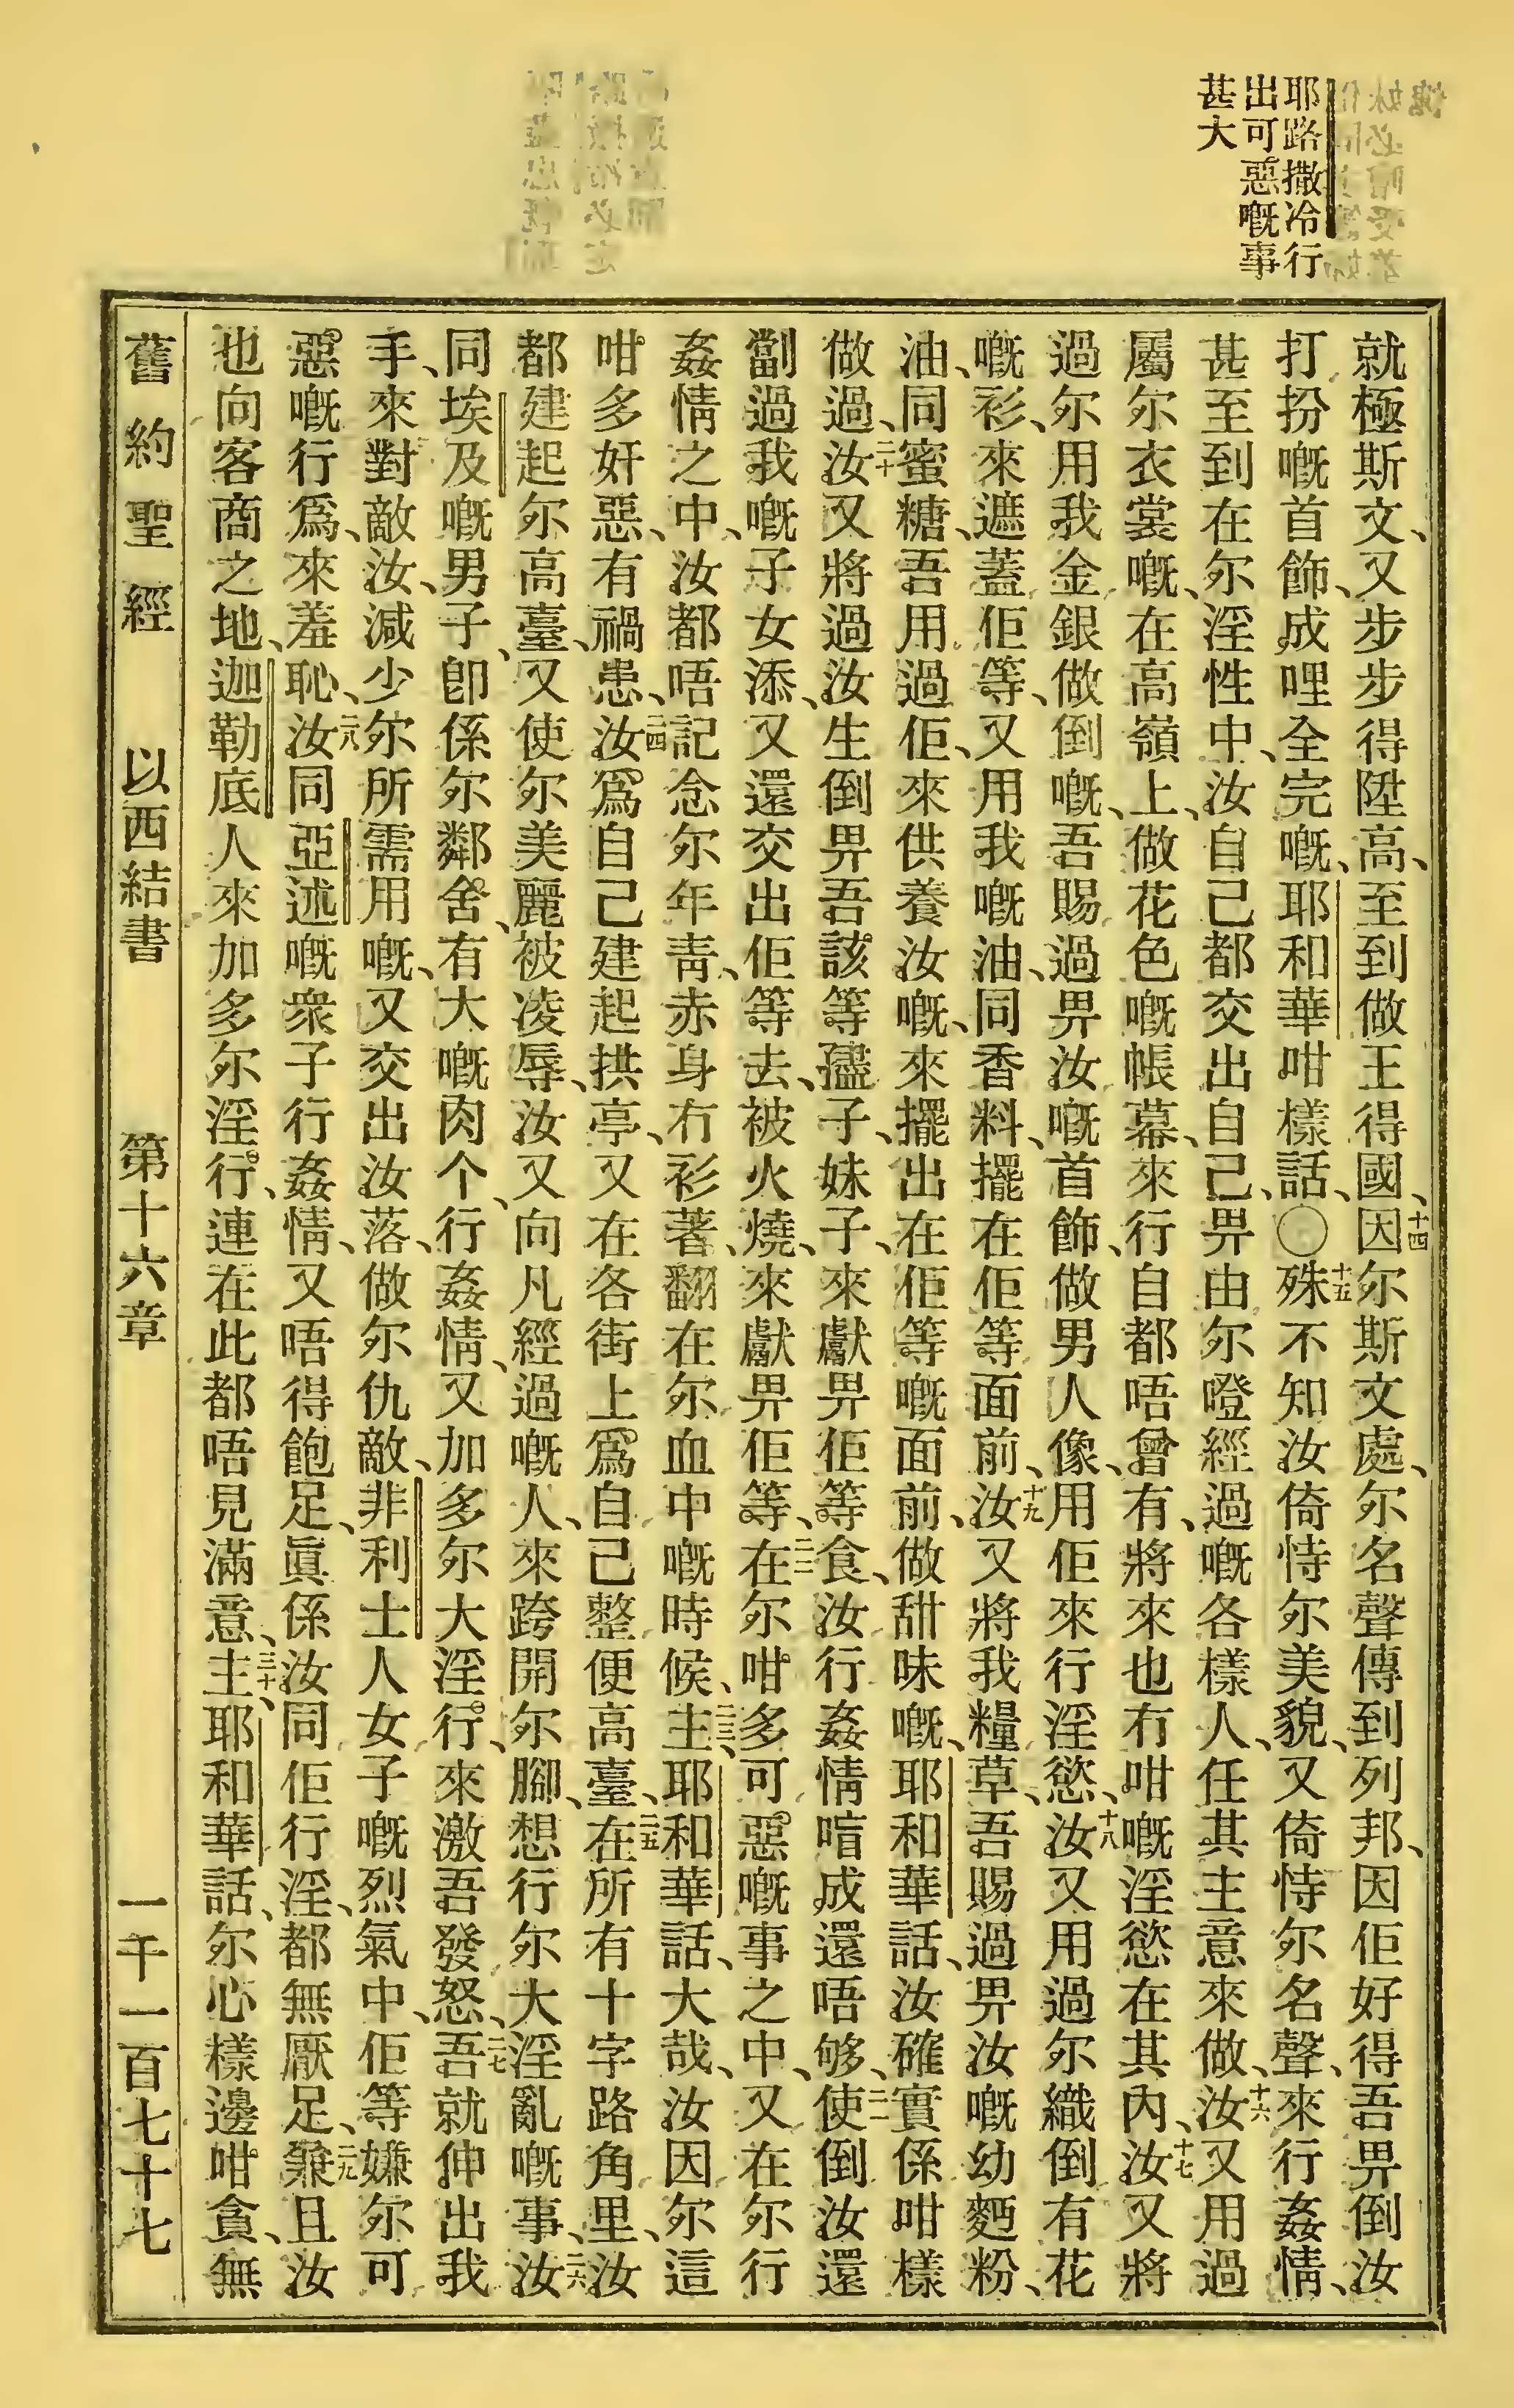 耶路撒冷行
出可惡嘅事
甚大
就極斯文、又步步得陞高、至到做王得國、十四因尔斯文處、尔名聲傳到列邦、因佢好得吾畀倒汝
打扮嘅首飾、成哩全完嘅、耶和華咁樣話、〇十五殊不知汝倚恃尔美貌、又倚恃尔名聲、來行姦情、
甚至到在尔淫性中、汝自己都交出自己、畀由尔𨅝經過嘅各樣人、任其主意來做、十六汝又用過
屬尔衣裳嘅、在高嶺上、做花色嘅帳幕、來行自都唔曾有、將來也冇咁嘅淫慾在其內、十七汝又將
過尔用我金銀做倒嘅、吾賜過畀汝嘅首飾、做男人像、用佢來行淫慾、十八汝又用過尔織倒有花
嘅衫、來遮蓋佢等、又用我嘅油、同香料、擺在佢等面前、十九汝又將我糧草、吾賜過畀汝嘅幼麪粉、
油、同蜜糖、吾用過佢、來供養汝嘅、來擺出在佢等嘅面前、做甜味嘅、耶和華話、汝確實係咁樣
做過、二十汝又將過汝生倒畀吾該等孺子、妹子、來獻畀佢等食、汝行姦情唔成還唔够、二一使倒汝還
劏過我嘅子女添、又還交出佢等去、被火燒、來獻畀佢等、二二在尔咁多可惡嘅事之中、又在尔行
姦情之中、汝都唔記念尔年靑、赤身冇衫著、翻在尔血中嘅時候、二三主耶和華話、大哉、汝因尔這
咁多奸惡、有禍患、二四汝爲自己建起拱亭、又在各街上爲自己整便高臺、二五在所有十字路角里、汝
都建起尔高臺、又使尔美麗被凌辱、汝又向凡經過嘅人、來跨開尔腳、想行尔大淫亂嘅事、二六汝
同埃及嘅男子、卽係尔鄰舍、有大嘅肉个、行姦情、又加多尔大淫行、來激吾發怒、二七吾就伸出我
手、來對敵汝、减少尔所需用嘅、又交出汝落、做尔仇敵、非利士人女子嘅烈氣中、佢等嫌尔可
惡嘅行爲、來羞恥、二八汝同亞述嘅衆子行姦情、又唔得飽足、眞係汝同佢行淫、都無厭足、二九兼且汝
也向客商之地、迦勒底人來加多尔淫行、連在此都唔見滿意、三十主耶和華話、尔心樣邊咁貪、無
舊約聖經　以西結書　第十六章　一千一百七十七